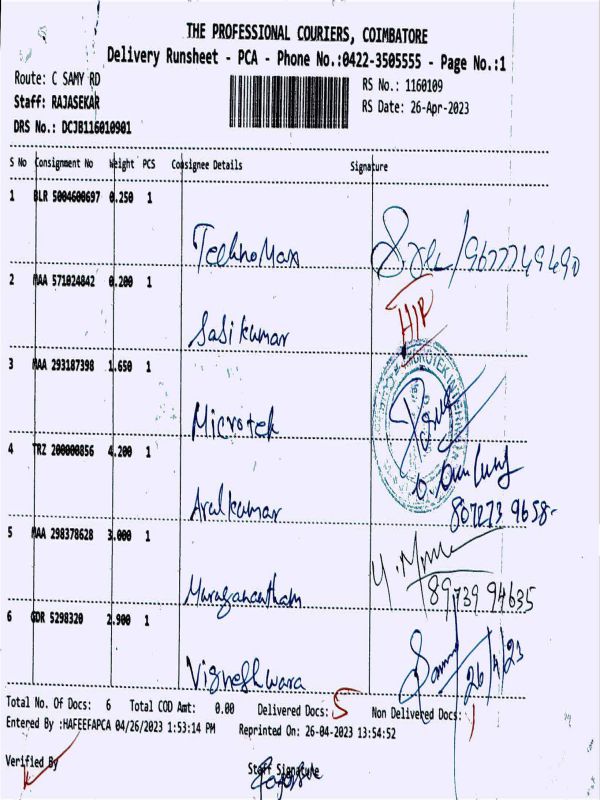 THE PROFESSIONAL COURIERS, COIMBATORE
Delivery Runsheet - PCA - Phone No.:0422-3505555 - Page No.:1
Route: C SAMY RD
RS No.: 1160109
Staff: RAJASEKAR
RS Date: 26-Apr-2023
DRS No.: DCJB116010901
S No Consignment No Weight PCS Consignee Details Signature
1 BLR 5004600697 0.250 1
TechnoMax 9677749490
2 MAA 571024842 0.200 1
Sasikumar H/P
3 MAA 293187398 1.650 1
Microtek
4 TRZ 200000856 4.200 1
Arulkumar
807273 9658-
5 MAA 298378628 3.000 1
Muruganantham 89739 94635
6 GDR 5298320 2.900 1
Vigneshwara 26/4/23
Total No. Of Docs: 6 Total COD Amt: 0.00 Delivered Docs: 5 Non Delivered Docs: 1
Entered By :HAFEEFAPCA 04/26/2023 1:53:14 PM Reprinted On: 26-04-2023 13:54:52
Verified By Staff Signature